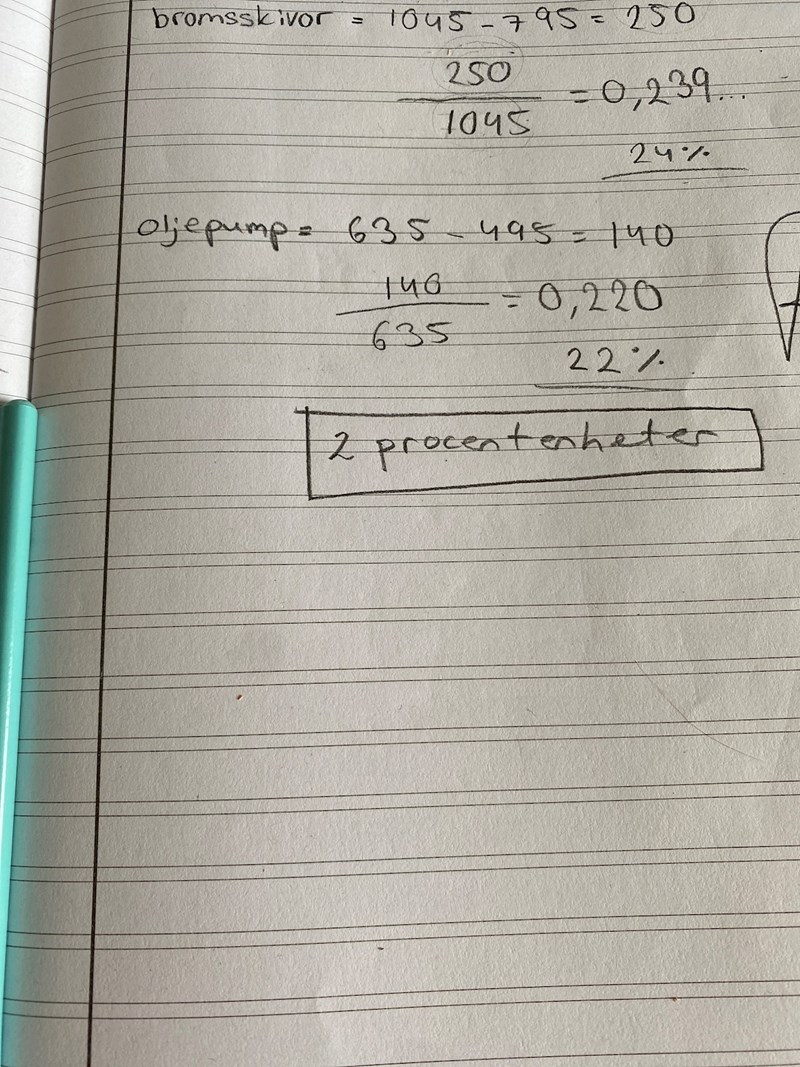 bromsskivor = 1045 - 795 = 250
250
1045
= 0,239...
24%
oljepump = 635 - 495 = 140
140
635
= 0,220
22%
2 procentenheter